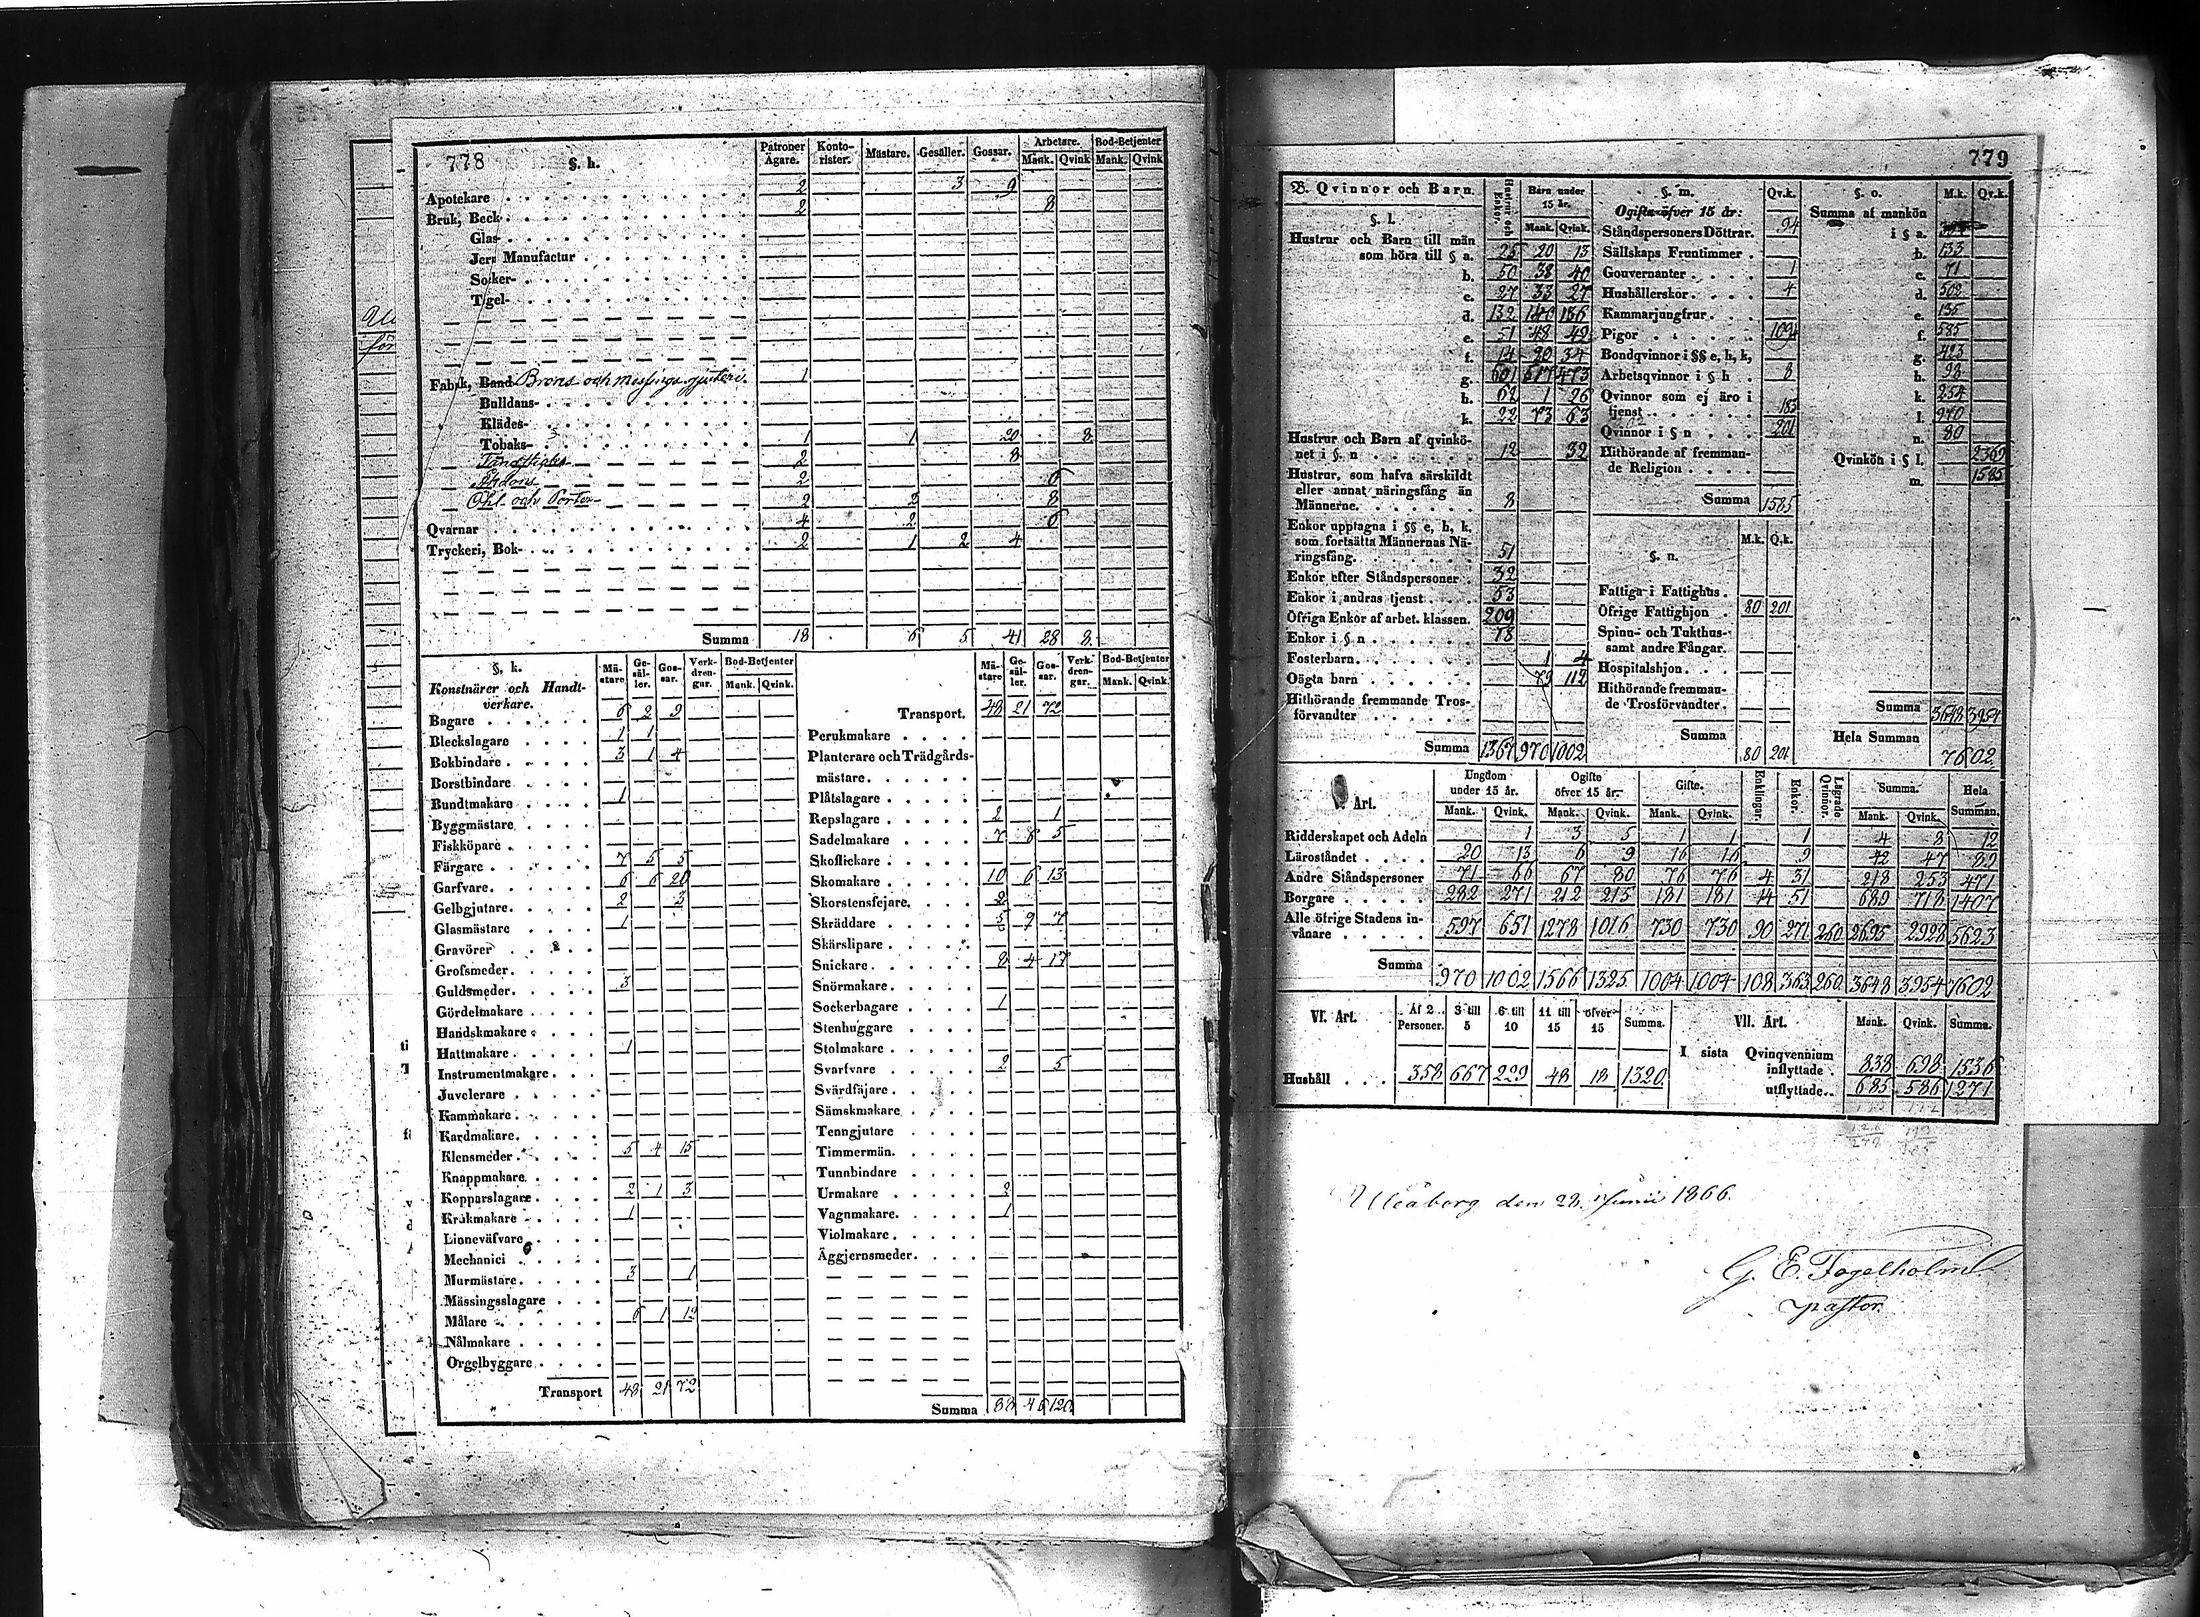 778 §. h. Patroner Ägare. Konto-rister. Mästare. Gesäller. Gossar. Arbetare. Mank. Qvink Bod-Betjenter Mank. Qvink
Apotekare 2 3 9
Bruk, Beck 2 8
Glas-
Jern Manufactur
Socker-
Tegel-
Fabrik, Band Brons och messings gjuteri 1
Bulldans-
Klädes-
Tobaks- 1 1 20 8
2 8
2 6
Öhl och Porter- 2 2 8
Qvarnar 4 2 6
Tryckeri, Bok- 2 1 2 4
Summa 18 6 5 41 28 8
§. k. Mä-stare. Ge-säl-ler. Gos-sar. Verk-dren-gar. Bod-Betjenter Mank. Qvink.
Konstnärer och Handt-
verkare.
Bagare 6 2 9
Bleckslagare 1 1
Bokbindare 3 1 4
Borstbindare
Bundtmakare 1
Byggmästare
Fiskköpare
Färgare 7 5 5
Garfvare 6 6 20
Gelbgjutare 2 3
Glasmästare 1
Gravörer
Grofsmeder
Guldsmeder 3
Gördelmakare
Handskmakare
Hattmakare 1
Instrumentmakare
Juvelerare
Kammakare
Kardmakare
Klensmeder 5 4 15
Knappmakare
Kopparslagare 2 1 3
Krukmakare 1
Linneväfvare
Mechanici
Murmästare 3 1
Mässingsslagare
Målare 6 1 12
Nålmakare
Orgelbyggare
Transport 48 21 72
Mä-stare Ge-säl-ler. Gos-sar. Verk-dren-gar. Bod-Betjenter Mank. Qvink.
Transport. 48 21 72
Perukmakare
Planterare och Trädgårds-
mästare
Plåtslagare
Repslagare 2 1
Sadelmakare 7 6 5
Skoflickare
Skomakare 10 6 13
Skorstensfejare 2
Skräddare 5 9 7
Skärslipare
Snickare 8 4 17
Snörmakare
Sockerbagare 1
Stenhuggare
Stolmakare
Svarfvare 2 5
Svärdfäjare
Sämskmakare
Tenngjutare
Timmermän
Tunnbindare
Urmakare 2
Vagnmakare 1
Violmakare
Äggjernsmeder
Summa 88 46 120
779
B. Qvinnor och Barn. Hustrur och Enkor. Barn under 15 år. Mank. Qvink.
§. l.
Hustrur och Barn till män
som höra till § a. 25 20 13
b. 50 38 40
c. 27 33 27
d. 132 140 136
e. 51 48 49
f. 14 20 34
g. 601 617 473
h. 62 1 26
k. 22 73 63
Hustrur och Barn af qvinkö-
net i §. n 12 32
Hustrur, som hafva särskildt
eller annat näringsfång än
Männerne 8
Enkor upptagna i §§ e, h, k,
som fortsätta Männernas Nä-
ringsfång. 51
Enkor efter Ståndspersoner 32
Enkor i andras tjenst 53
Öfriga Enkor af arbet. klassen. 209
Enkor i § n 78
Fosterbarn 1 4
Oägta barn 79 112
Hithörande fremmande Tros-
förvandter
Summa 1367 970 1002
§. m. Qv.k.
Ogifta öfver 15 år:
Ståndspersoners Döttrar. 94
Sällskaps Fruntimmer
Gouvernanter 1
Hushållerskor 4
Kammarjungfrur
Pigor 1094
Bondqvinnor i §§ e, h, k,
Arbetsqvinnor i § h 8
Qvinnor som ej äro i
tjenst 183
Qvinnor i § n 201
Hithörande af fremman-
de Religion
Summa 1585
M.k. Q.k.
§. n.
Fattiga i Fattighus
Öfrige Fattighjon 80 201
Spinn- och Tukthus-
samt andre Fångar.
Hospitalshjon
Hithörande fremman-
de Trosförvandter.
Summa 80 201
§. o. M.k. Qv.k.
Summa af mankön
i § a.
b. 133
c. 71
d. 502
e. 135
f. 585
g. 423
h. 98
k. 254
l. 970
n. 80
Qvinkön i § l. 2369
m. 1585
Summa 3648 3954
Hela Summan 7602
V. Art. Ungdom under 15 år. Mank. Qvink. Ogifte öfver 15 år. Mank. Qvink. Gifte. Mank. Qvink. Enklingar. Enkor. Lägrade Qvinnor. Summa. Mank. Qvink. Hela Summan.
Ridderskapet och Adeln 1 3 5 1 1 1 4 8 12
Läroståndet 20 13 6 9 16 16 9 42 47 89
Andre Ståndspersoner 71 66 67 80 76 76 4 31 218 253 471
Borgare 282 271 212 215 181 181 14 51 689 718 1407
Alle öfrige Stadens in-
vånare 597 651 1278 1016 730 730 90 271 260 2695 2928 5623
Summa 970 1002 1566 1325 1004 1004 108 363 260 3648 3954 7602
VI. Art. Af 2 Personer. 3 till 5 6 till 10 11 till 15 öfver 15 Summa.
Hushåll 358 667 229 48 18 1320
VII. Art. Mank. Qvink. Summa.
I sista Qvinqvennium
inflyttade 838 698 1536
utflyttade 685 586 1271
Uleåborg den 28. Junii 1866.
G. E. Fogelholm
pastor.